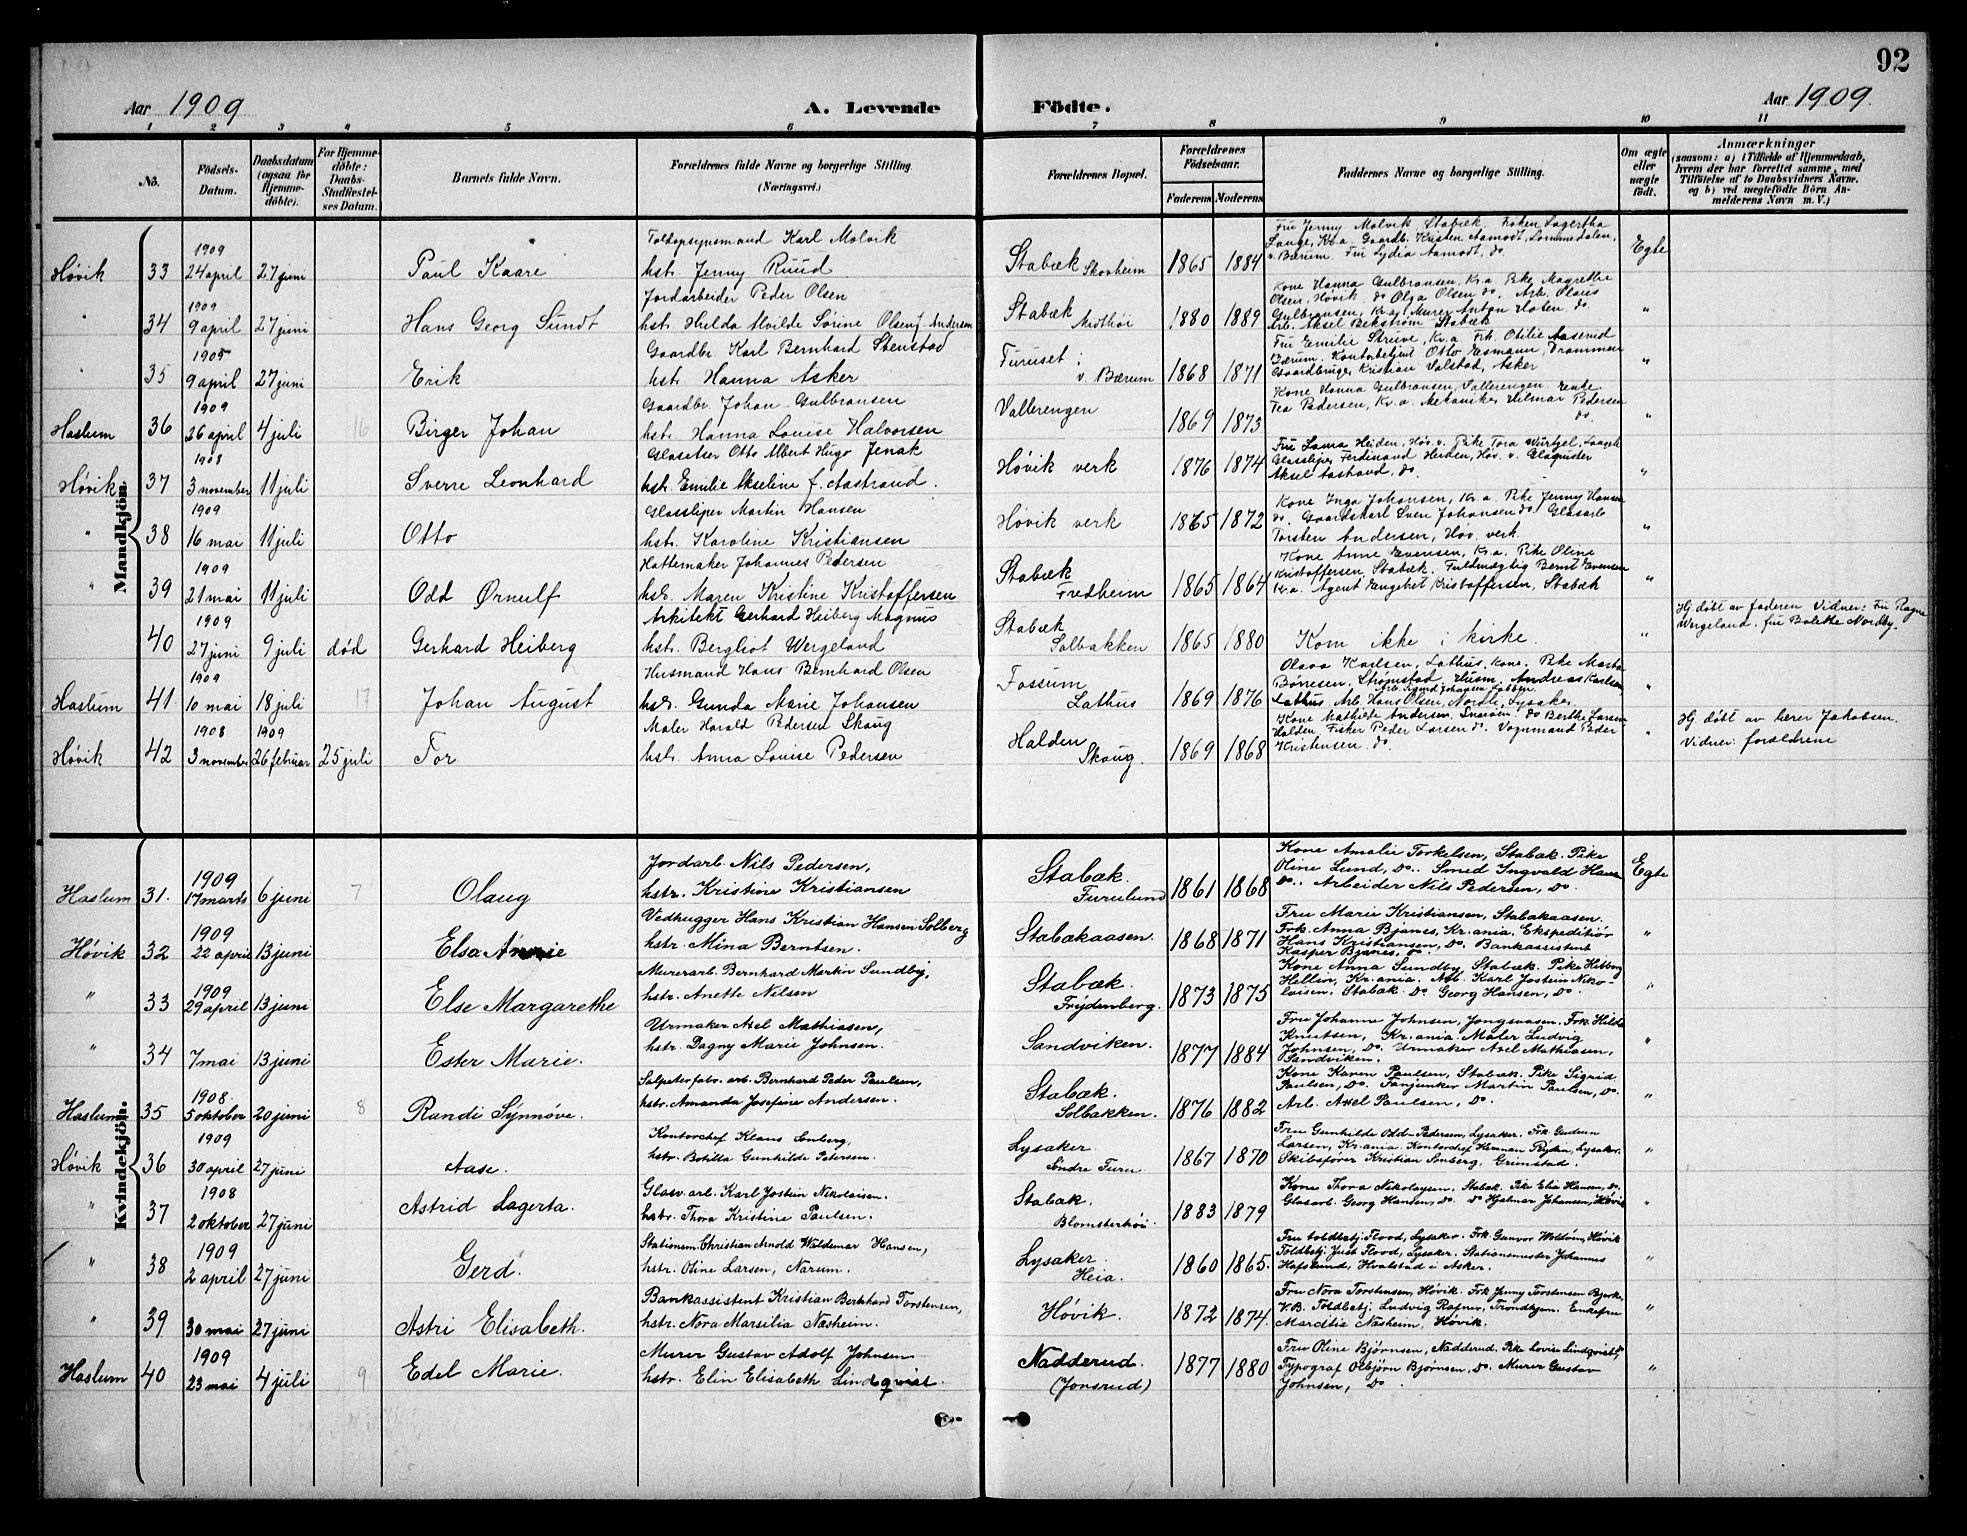 92
Aar 1909 A. Levende Födte. Aar 1909.
1 2 3 4 5 6 7 8 9 10 11
No. Födsels-Datum. Daabsdatum (ogsaa for Hjemme-döbte). For Hjemme-döbte: Daabs-Stadfæstel-ses Datum. Barnets fulde Navn. Forældrenes fulde Navne og borgerlige Stilling. (Næringsvei.) Forældrenes Bopæl. Forældrenes Födselsaar. Faderens Moderens Faddernes Navne og borgerlige Stilling. Om ægte eller uægte födt. Anmærkninger (saasom: a) i Tilfælde af Hjemmedaab, hvem der har forrettet samme, med Tilföielse af to Daabsvidners Navne, og b) ved uægtefödte Börn An-melderens Navn m. V.)
Mandkjön.
1909 Toldopsynsmand Karl Molvik Fru Jenny Molvik Stabæk, Frøken Lagertha
Høvik 33 24 april 27 juni Paul Kaare hstr. Jenny Ruud Stabæk Skovheim 1865 1884 Lange, Kr.a. Gaardb. Kristen Aamodt, Lommedalen, v. Bærum. Fru Lydia Aamodt, do. Egte
1909 Jordarbeider Peder Olsen Kone Hanna Gulbransen, Kr.a Pike Magrethe
" 34 9 april 27 juni Hans Georg Sundt hstr. Hulda Alvilde Sørine Olsen f. Andersen Stabæk 1880 1889 Olsen, Høvik. do Olga Olsen do. Arb. Olaus Gulbransen, Kr.a, Murer Anton Holen do. Arb. Aksel Bekstrøm Stabæk "
1905 Gaardbr. Karl Bernhard Stenstad Fru Emilie Struve, Kr.a Frk. Otilie Aaserud
" 35 9 april 27 juni Erik hstr. Hanna Asker Furuset i v. Bærum 1868 1871 Bærum. Kontorbetjent Otto Esmann, Drammen Gaardbruger Kristian Valstad, Asker "
1909 Gaardbr. Johan Gulbransen Kone Hanna Gulbransen, Vallerengen, enke
Haslum 36 26 april 4 juli 16 Birger Johan hstr. Hanna Louise Halvorsen Vallerengen 1869 1873 Tea Pedersen, Kr.a. Mekaniker Hilmar Pedersen do. "
1908 Glasetser Otto Albert Hugo Jenak
Høvik 37 3 november 11 juli Sverre Leonhard hstr. Emilie Akseline f. Aastrand. Høvik verk 1876 1874 Fru Laura Heiden, Høv. v. Pike Tora Wurtzel, Glassliper Ferdinand Heiden, Høv. v. Glaspuster Aksel Aastrand, do. "
1909 Glassliper Martin Hansen
" 38 16 mai 11 juli Otto hstr. Karoline Kristiansen Høvik verk 1865 1872 Kone Inga Johansen, Kr.a. Pike Jenny Hansen do. Gaardskarl Sven Johansen do. Glasarb Torsten Andersen, Høv. verk "
1909 Hattemaker Johannes Pedersen
" 39 21 mai 11 juli Odd Ørnulf hstr. Maren Kristine Kristoffersen Stabæk Fredheim 1865 1864 Kone Anne Evensen, Kr.a. Pike Oline Kristoffersen, Stabæk. Fuldmægtig Bernt Evensen Kr.a. Agent Engebret Kristoffersen, Stabæk "
1909 Arkitekt Gerhard Heiberg Magnus
40 27 juni 9 juli død Gerhard Heiberg hstr. Bergliot Wergeland Stabæk Solbakken 1865 1880 Kom ikke i kirke. " Hj døbt av faderen Vidner: Fru Ragna Wergeland. fru Bolette Nordby.
1909 Husmand Hans Bernhard Olsen
Haslum 41 10 mai 18 juli 17 Johan August hstr. Gunda Marie Johansen Fossum Lathus 1869 1876 Olava Karlsen, Lathus, kone. Pike Marta Børresen, Strømstad, Husm. Andreas Karlsen Lathus Arb. Hans Olsen, Nordli, Lysaker "
1908 1909 Maler Harald Pedersen Skaug
Høvik 42 3 november 26 februar 25 juli Tor hstr. Anna Louise Pedersen Halden Skaug. 1869 1868 Kone Mathilde Andersen, Snarøen. do Berthe Larsen Halden, Fisker Peder Larsen do. Vognmand Peder Kristensen do. " Hj døbt av lærer Jakobsen. Vidner: forældrene
Kvindekjön.
1909 Jordarb. Nils Pedersen,
Haslum 31. 17 marts 6 juni 7 Olaug hstr. Kristine Kristiansen Stabæk. Furulund 1861 1868 Kone Amalie Torkelsen, Stabæk. Pike Oline Lund, Do.. Smed Ingvald Hansen Do.. Arbeider Nils Pedersen, Do. Egte
1909 Vedhugger Hans Kristian Hansen Solberg
Høvik 32 22 april 13 juni Elsa Annie hstr. Mina Berntsen. Stabækaasen. 1868 1871 Fru Marie Kristiansen, Stabækaasen. Frk. Anna Bjanes, Kr.ania. Ekspeditiør Hans Kristiansen, Do. Bankassistent Kasper Bjanes, Do. "
1909 Murerarb. Bernhard Martin Sundby,
" 33 29 april 13 juni Else Margarethe hstr. Anette Nilsen Stabæk. Frydenberg. 1873 1875 Kone Anna Sundby Stabæk. Pike Helborg Hellin, Kr.ania. Arb. Karl Jostein Niko-laisen, Stabæk. Do Georg Hansen, Do. "
Urmaker Axel Mathiasen,
" 34 7 mai 13 juni Ester Marie. hstr. Dagny Marie Johnsen. Sandviken. 1877 1884 Fru Johanne Johnsen, Jongsaasen. Frk. Hilda Knutsen, Kr.ania. Maler Ludvig Johnsen, Do. Urmaker Axel Mathiasen, Sandviken. "
1908. Salpeterfabr. arb. Bernhard Peder Paulsen,
Haslum 35 5 oktober 20 juni 8 Randi Synnøve. hstr. Amanda Josefine Andersen. Stabæk. Solbakken. 1876 1882 Kone Karen Paulsen, Stabæk. Pike Sigrid Paulsen, Do. Fanjunker Martin Paulsen, Do. Arb. Axel Paulsen, Do. "
1909 Kontorchef Klaus Sonberg,
Høvik 36 30 april 27 juni Aase. hstr. Botilla Gunhilde Petersen. Lysaker Søndre Furu 1867 1870 Fru Gunhilde Odd-Pedersen, Lysaker. Frk. Gudrun Larsen, Kr.ania. Kontorchef Herman Røyken, Lysaker. Skibsfører Kristian Sonberg, Grimstad. "
1908 Glasv. arb. Karl Jostein Nikolaisen.
" 37 2 oktober 27 juni Astrid Lagerta. hstr. Thora Kristine Paulsen. Stabæk. Blomsterhøi. 1883 1879 Kone Thora Nikolaysen, Stabæk. Pike Elin Hansen, Do. Glasarb. Georg Hansen, Do. Do Hjalmar Johansen, Høvik "
1909 Stationsm. Christian Arnold Waldemar Hansen,
" 38 2 april 27 juni Gerd. hstr. Oline Larsen, Narum. Lysaker. Heia. 1860 1865. Fru toldbetj. Flood, Lysaker. Frk. Gunvor Woldom, Høvik Toldbetj. Just Flood, Lysaker. Stationsmester Johannes Hafslund, Hvalstad i Asker. "
Bankassistent Kristian Bernhard Torstensen,
" 39 30 mai 27 juni Astri Elisabeth. hstr. Nora Marsilia Næsheim. Høvik. 1872 1874. Fru Nora Torstensen, Høvik. Frk Jenny Torstensen Bjerke, V.B. Toldbetj. Ludvig Rafner, Trondhjem. Enkefru Marcitia Næsheim, Høvik. "
1909 Murer Gustav Adolf Johnsen
Haslum 40 23 mai 4 juli 9 Edel Marie. hstr. Elin Elisabeth Lindqvist. Nadderud. (Jonsrud) 1877 1880 Fru Oline Bjørnsen, Nadderud. Pike Lovise Lindqvist, Do Typograf Olbjørn Bjørnsen, Do. Murer Gustav Johnsen, Do. "